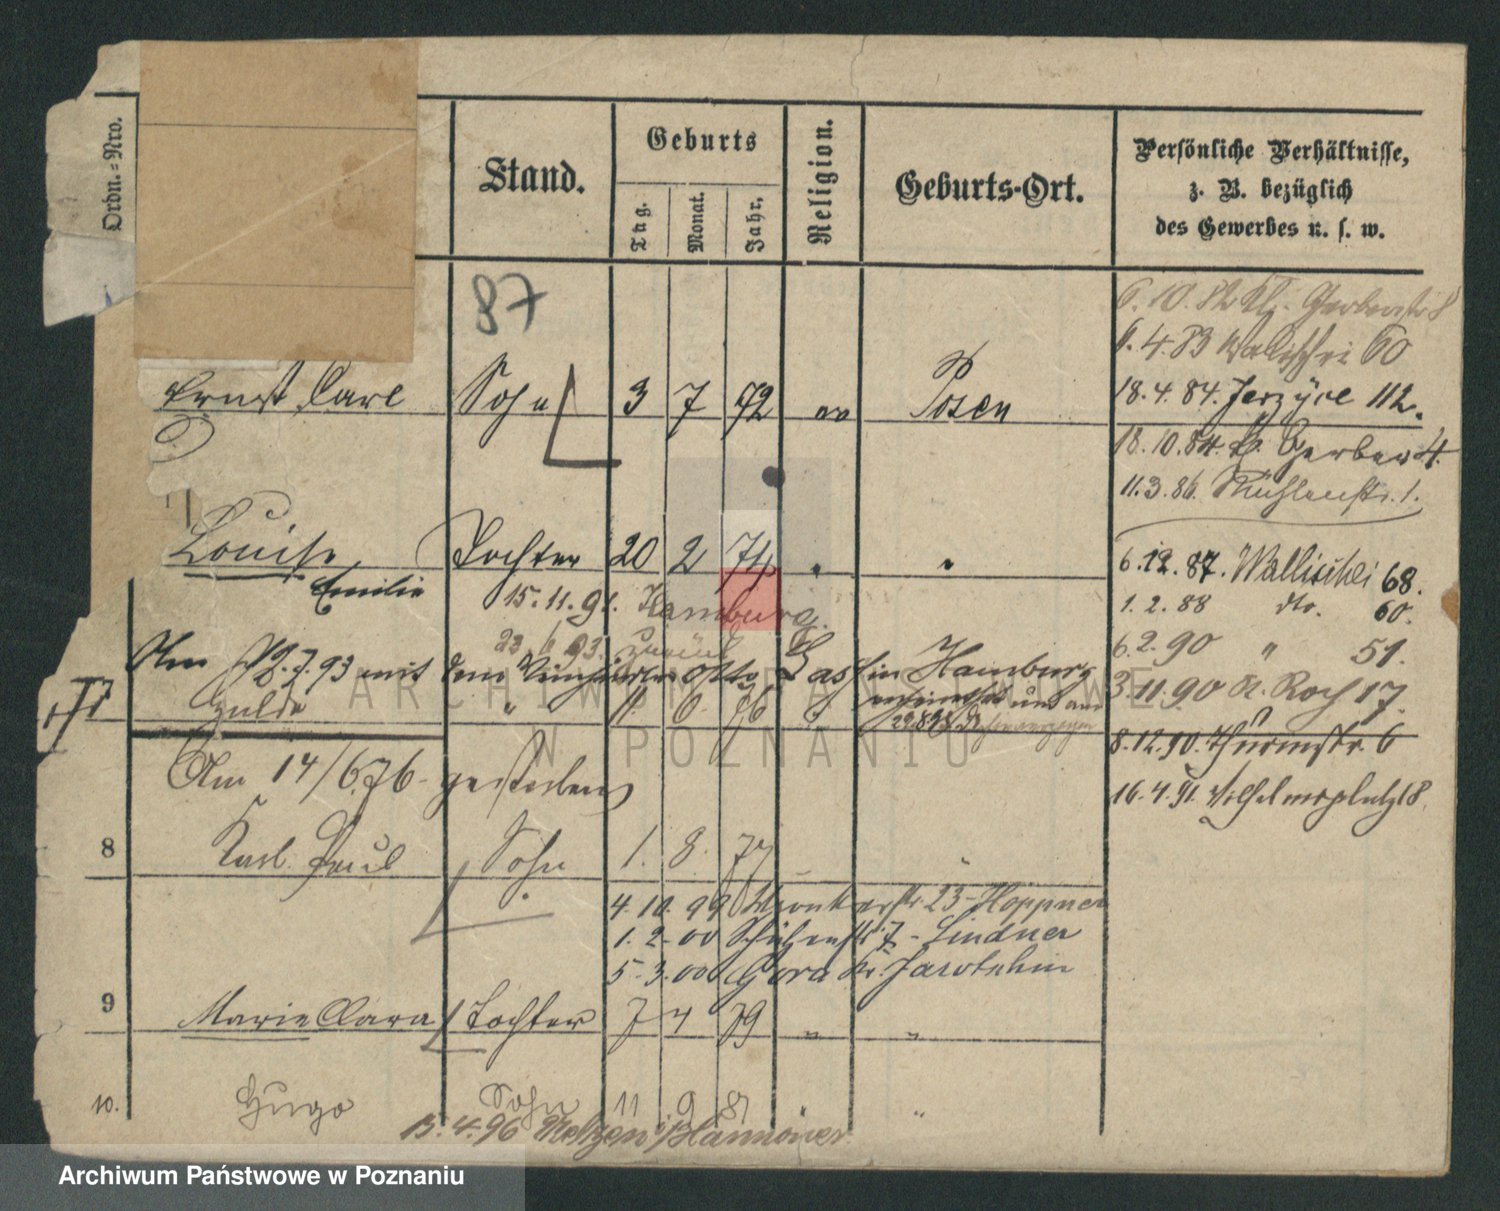 Ordn.-Nro.
Stand.
Geburts
Tag.
Monat.
Jahr.
Religion.
Geburts-Ort.
Persönliche Verhältnisse,
z. B. bezüglich
des Gewerbes u. s. w.
87
6. 10. 82 Kl. Gerberstr 8
6. 4. 83 Wallischei 60
Ernst Carl Sohn 3 7 72 ev Posen
18. 4. 84. Jerzyce 112.
18. 10. 84. Gerber 4.
11. 3. 86. Mühlenstr. 1.
Louise Tochter 20 2 74 " "
Emilie
6. 12. 87. Wallischei 68.
15. 11. 91. Hamburg.
1. 2. 88 dto. 60.
23 6 93. zurück
6. 2. 90 " 51.
Am 12. 7. 93 mit dem Otto Gass in Hamburg
3. 11. 90 St. Roch 17.
" 11. 6. 76 "
und am
8. 12. 90. Thurmstr. 6
Am 14/6. 76 gestorben
16. 4. 91. Wilhelmsplatz 18.
8 Karl Paul Sohn 1. 8. 77 "
4. 10. 99 Wronkerstr 23 - Höppner
1. 2. 00 Schützenstr 7 - Lindner
5. 3. 00 Gora Kr. Jarotschin
9 Marie Clara Tochter 7 4 79 " "
10. Hugo Sohn 11 9 81 " "
15. 4. 96 Uelzen i/Hannover
ARCHIWUM PAŃSTWOWE
W POZNANIU
Archiwum Państwowe w Poznaniu